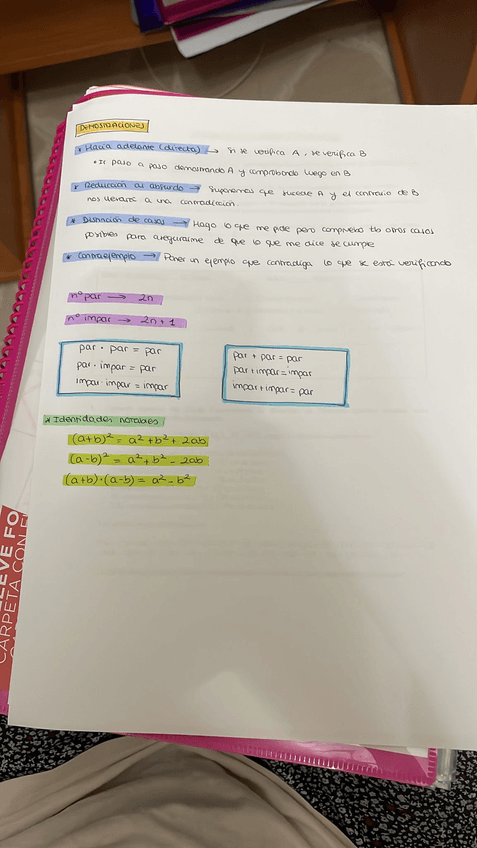 DEMOSTRACIONES
* Hacia adelante (directa) → Si se verifica A, se verifica B
* Ir paso a paso demostrando A y comprobando luego en B
* Reducción al absurdo → Suponemos que sucede A y el contrario de B
nos llevará a una contradicción.
* Distinción de casos → Hago lo que me pide pero compruebo tb otros casos
posibles para asegurarme de que lo que me dice se cumple
* Contraejemplo → Poner un ejemplo que contradiga lo que se está verificando
nº par → 2n
nº impar → 2n + 1
par · par = par
par · impar = par
impar · impar = impar
par + par = par
par + impar = impar
impar + impar = par
* Identidades notables
(a+b)² = a² + b² + 2ab
(a-b)² = a² + b² - 2ab
(a+b)·(a-b) = a² - b²
LEVE FO
CARPETA CON F